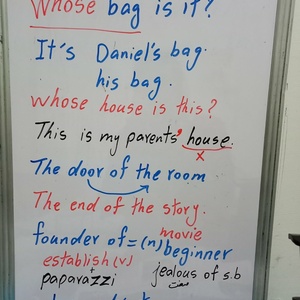 Whose bag is it?
It's Daniel's bag.
his bag.
whose house is this?
This is my parents' house.
x
The door of the room
The end of the story.
movie
founder of = (n) beginner
establish (v)
paparazzi
jealous of s.b